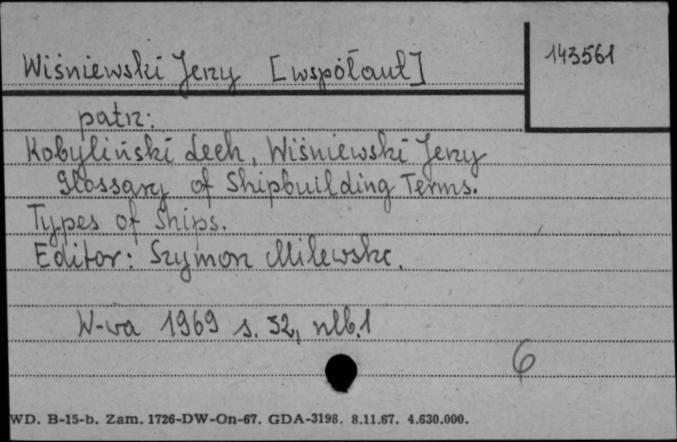 143561
Wiśniewski Jerzy [współaut]
patrz:
Kobyliński Lech, Wiśniewski Jerzy
Glossary of Shipbuilding Terms.
Types of Ships.
Editor: Szymon Milewski.
W-wa 1969 s. 32, nlb.1
6
WD. B-15-b. Zam. 1726-DW-On-67. GDA-3198. 8.11.67. 4.630.000.